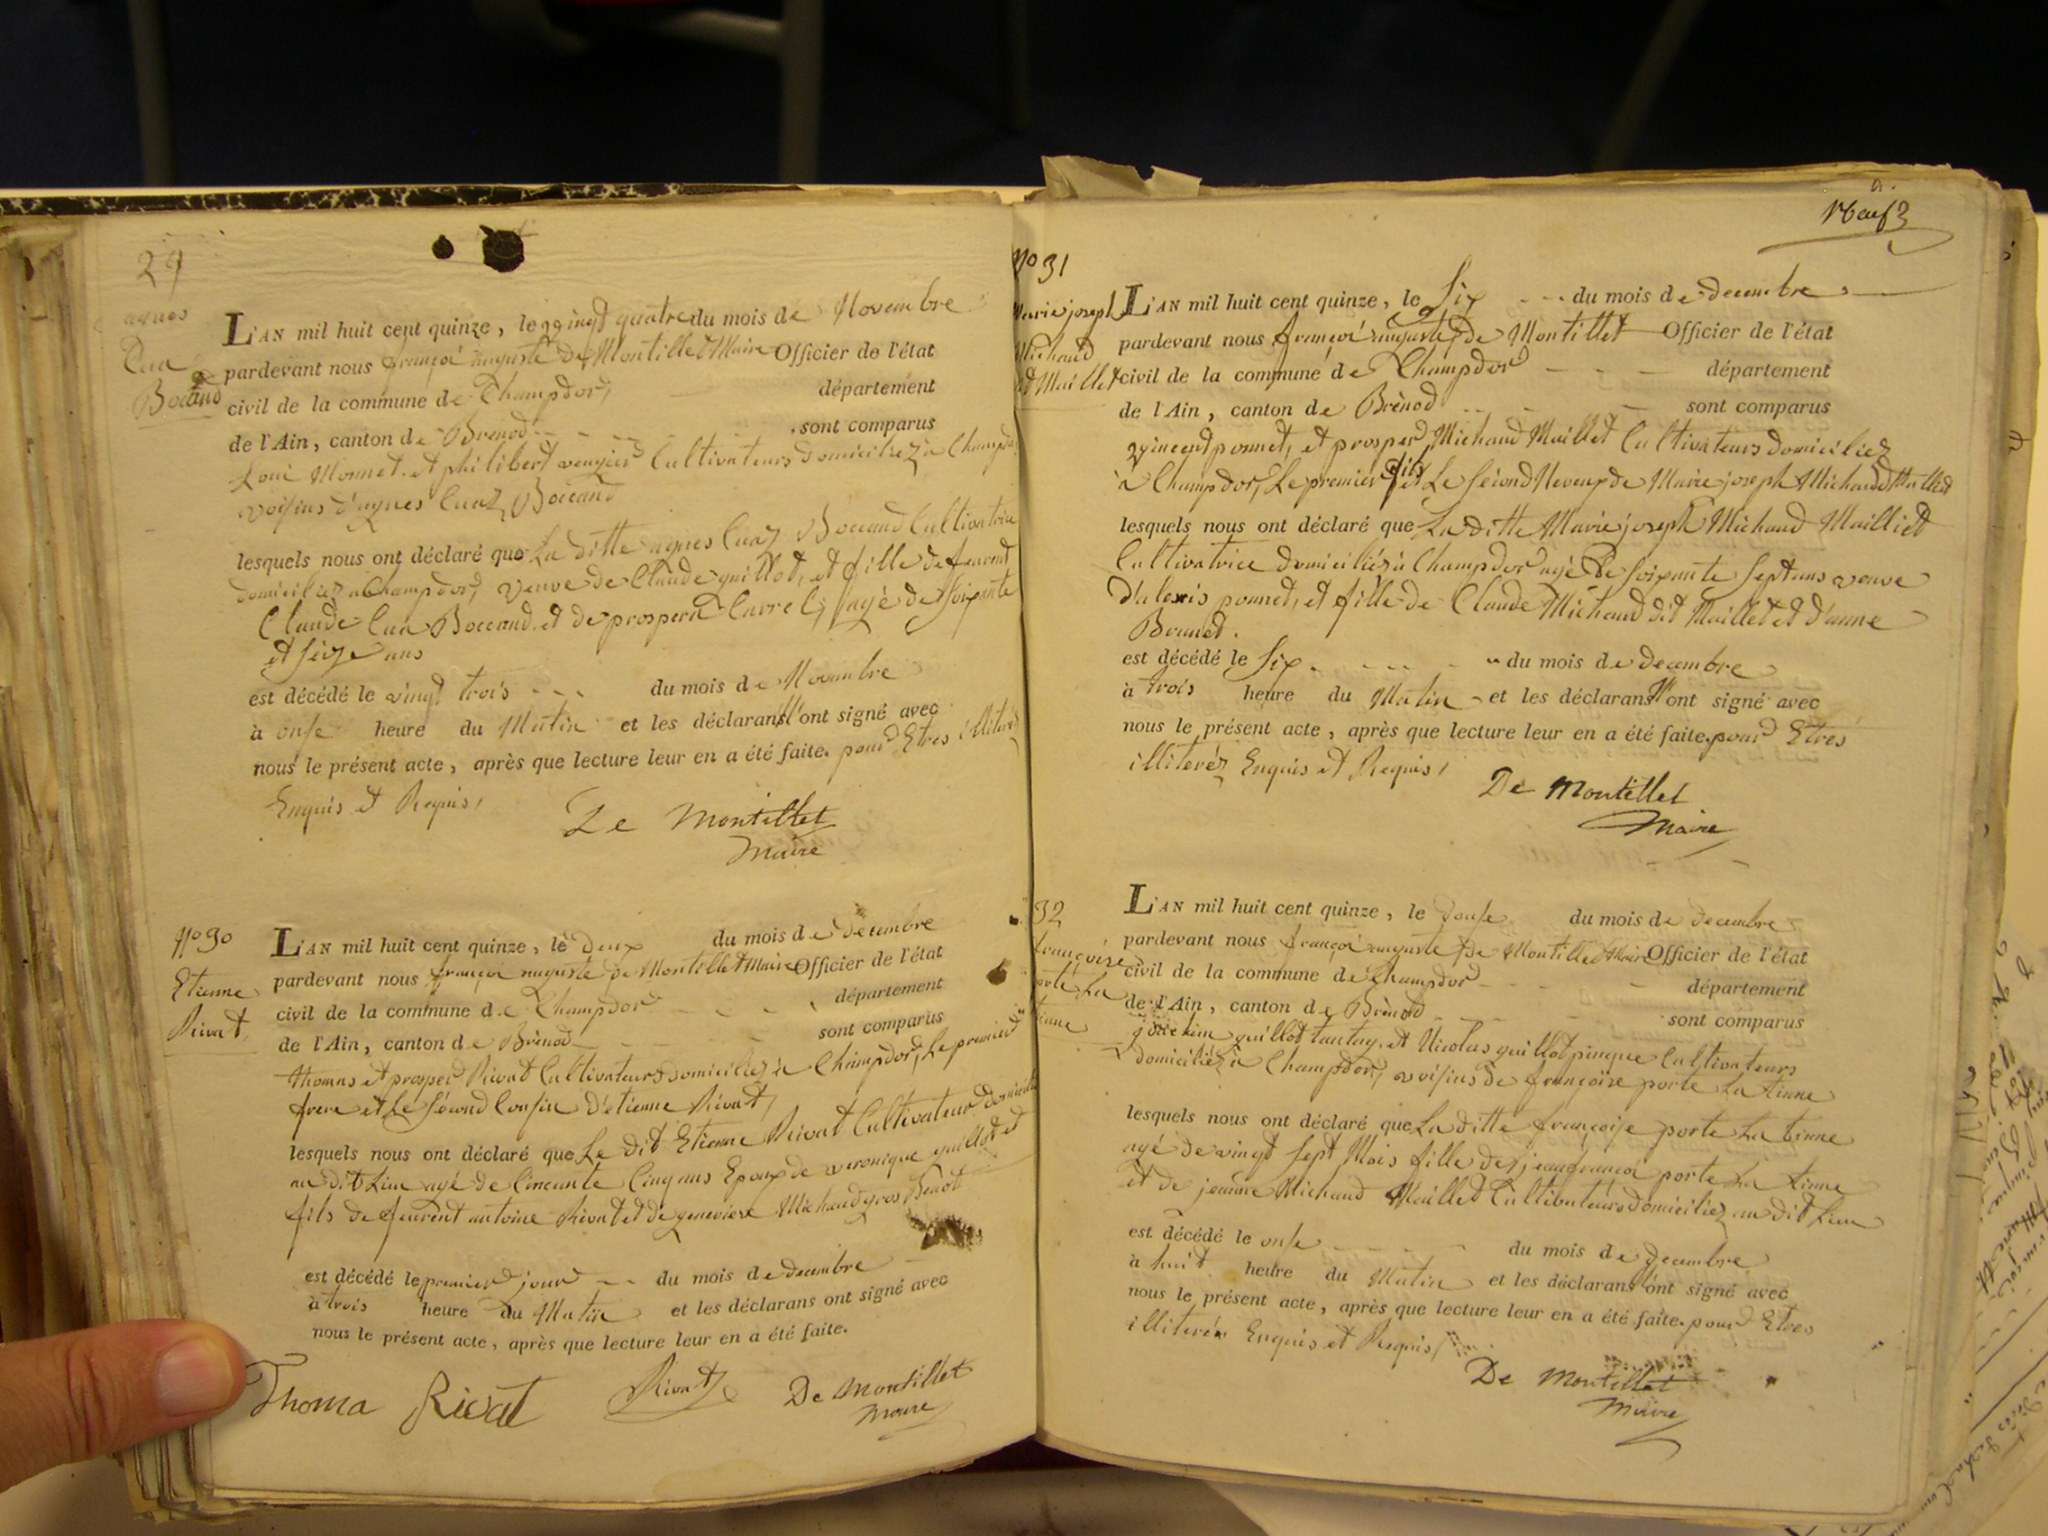 29
agnes
Cua
Bocand
L'AN mil huit cent quinze, le vingt quatre du mois de Novembre
pardevant nous françoi auguste De Montillet Maire Officier de l'état
civil de la commune de Champdor, département
de l'Ain, canton de Brenod sont comparus
Loui Monnet et philibert Cultivateurs domiciliez à Champdor
voisins d'agnes Cuaz Boccand
lesquels nous ont déclaré que La ditte agnes Cuaz Boccand Cultivatrice
domiciliez a Champdor, veuve de Claude guillot, et fille de feurent
Claude Cua Boccand et de prosperà Carrel, agé de Soixante
et seize ans
est décédé le vingt trois du mois de Novembre
à onse heure du Matin et les déclarans n'ont signé avec
nous le présent acte, après que lecture leur en a été faite. pour Etres illiterés
Enquis et Requis,
De Montillet
Maire
No 30
Etienne
Rivat
L'AN mil huit cent quinze, le deux du mois de decembre
pardevant nous françoi auguste de Montillet Maire Officier de l'état
civil de la commune de Champdor département
de l'Ain, canton de Brénod sont comparus
thomas et prosper Rivat Cultivateurs domiciliez à Champdor, Le premier
frere et Le second Cousin d'etienne Rivat,
lesquels nous ont déclaré que Le dit Etienne Rivat Cultivateur domicilié
au dit Lieu agé de Cincante Cinq ans Epoux de veronique guillot et
fils de feurent antoine Rivat et de genevieve Michaud gros Benoit
est décédé le premier jour du mois de decembre
à trois heure du Matin et les déclarans ont signé avec
nous le présent acte, après que lecture leur en a été faite.
Thoma Rivat Rivat De Montillet
Maire
9.
Neuf
No 31
Marie joseph
Michaud
dt Maillet
L'AN mil huit cent quinze, le Six du mois de decembre
pardevant nous françoi auguste de Montillet Officier de l'état
civil de la commune de Champdor département
de l'Ain, canton de Brènod sont comparus
vincent ponnet, et prosper Michaud Maillet Cultivateurs domiciliez
à Champdor, Le premier fils et Le second Neveux de Marie joseph Michaud Maillet
lesquels nous ont déclaré que La ditte Marie joseph Michaud Mailliet
Cultivatrice domiciliés à Champdor agé de soixante Sept ans veuve
d'alexis ponnet, et fille de Claude Michaud dit Maillet et d'anne
Bonnet.
est décédé le six du mois de decembre
à trois heure du Matin et les déclarans n'ont signé avec
nous le présent acte, après que lecture leur en a été faite. pour Etres
illiterés Enquis et Requis,
De Montillet
Maire
32
françoise
porte La
tinne
L'AN mil huit cent quinze, le douse du mois de decembre
pardevant nous françoi auguste de Montillet Maire Officier de l'état
civil de la commune de Champdor département
de l'Ain, canton de Brènod sont comparus
guillot tantay et Nicolas guillot pinque Cultivateurs
domiciliéz à Champdor, voisins de françoise porte La tinne
lesquels nous ont déclaré que La ditte françoise porte La tinne
agé de vingt sept Mois fille de jean françoi porte La tinne
et de jeanne Michaud Maillet Cultivateurs domiciliez au dit Lieu
est décédé le onse du mois de decembre
à huit heure du Matin et les déclarans n'ont signé avec
nous le présent acte, après que lecture leur en a été faite. pour Etres
illiterés Enquis et Requis,
De Montillet
Maire